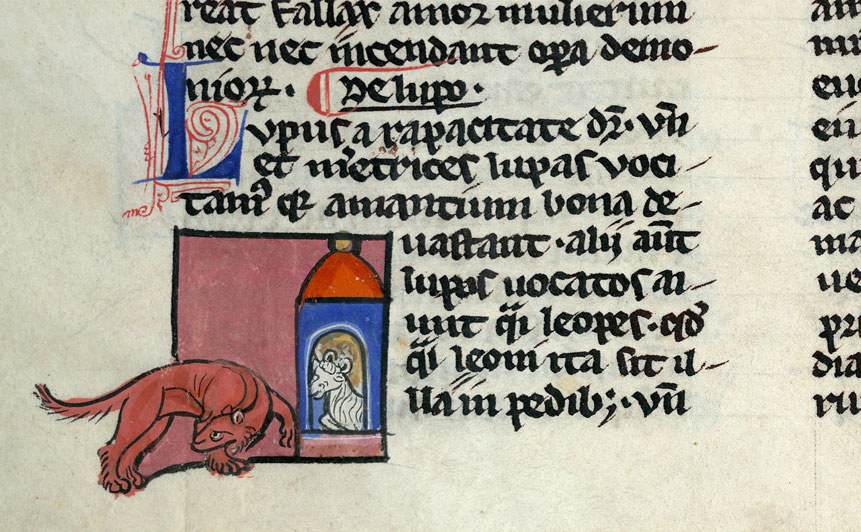 reat fallax amor mulierum
nec nec incendant opera demo-
niorꝝ. De lupo.
Lupus a rapacitate dr̄. vn̄
et meretrices lupas voci-
tamꝰ qꝛ amantium bona de-
uastant. alij aūt
lupos uocatos ai-
unt q̄i leopes.
q̄i leoni ita sit il-
lla in pedibꝫ. vn̄
am
eu
qu
ac
ma
ue
pri
dia
ru